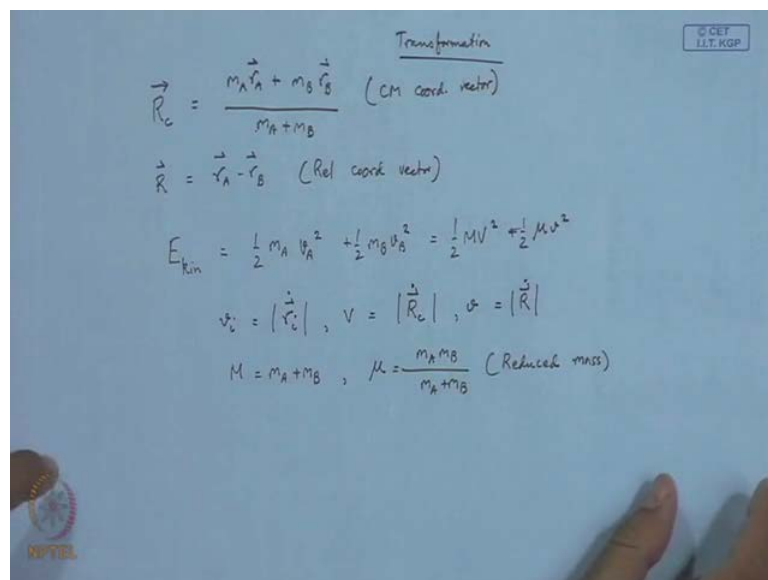 Transformation
© CET
I.I.T. KGP
R⃗_c = (m_A r⃗_A + m_B r⃗_B) / (m_A + m_B) (CM coord. vector)
R⃗ = r⃗_A - r⃗_B (Rel coord vector)
E_kin = 1/2 m_A v_A² + 1/2 m_B v_B² = 1/2 MV² + 1/2 μv²
v_i = |ṙ⃗_i| , V = |Ṙ⃗_c| , v = |Ṙ⃗|
M = m_A + m_B , μ = m_A m_B / (m_A + m_B) (Reduced mass)
NPTEL